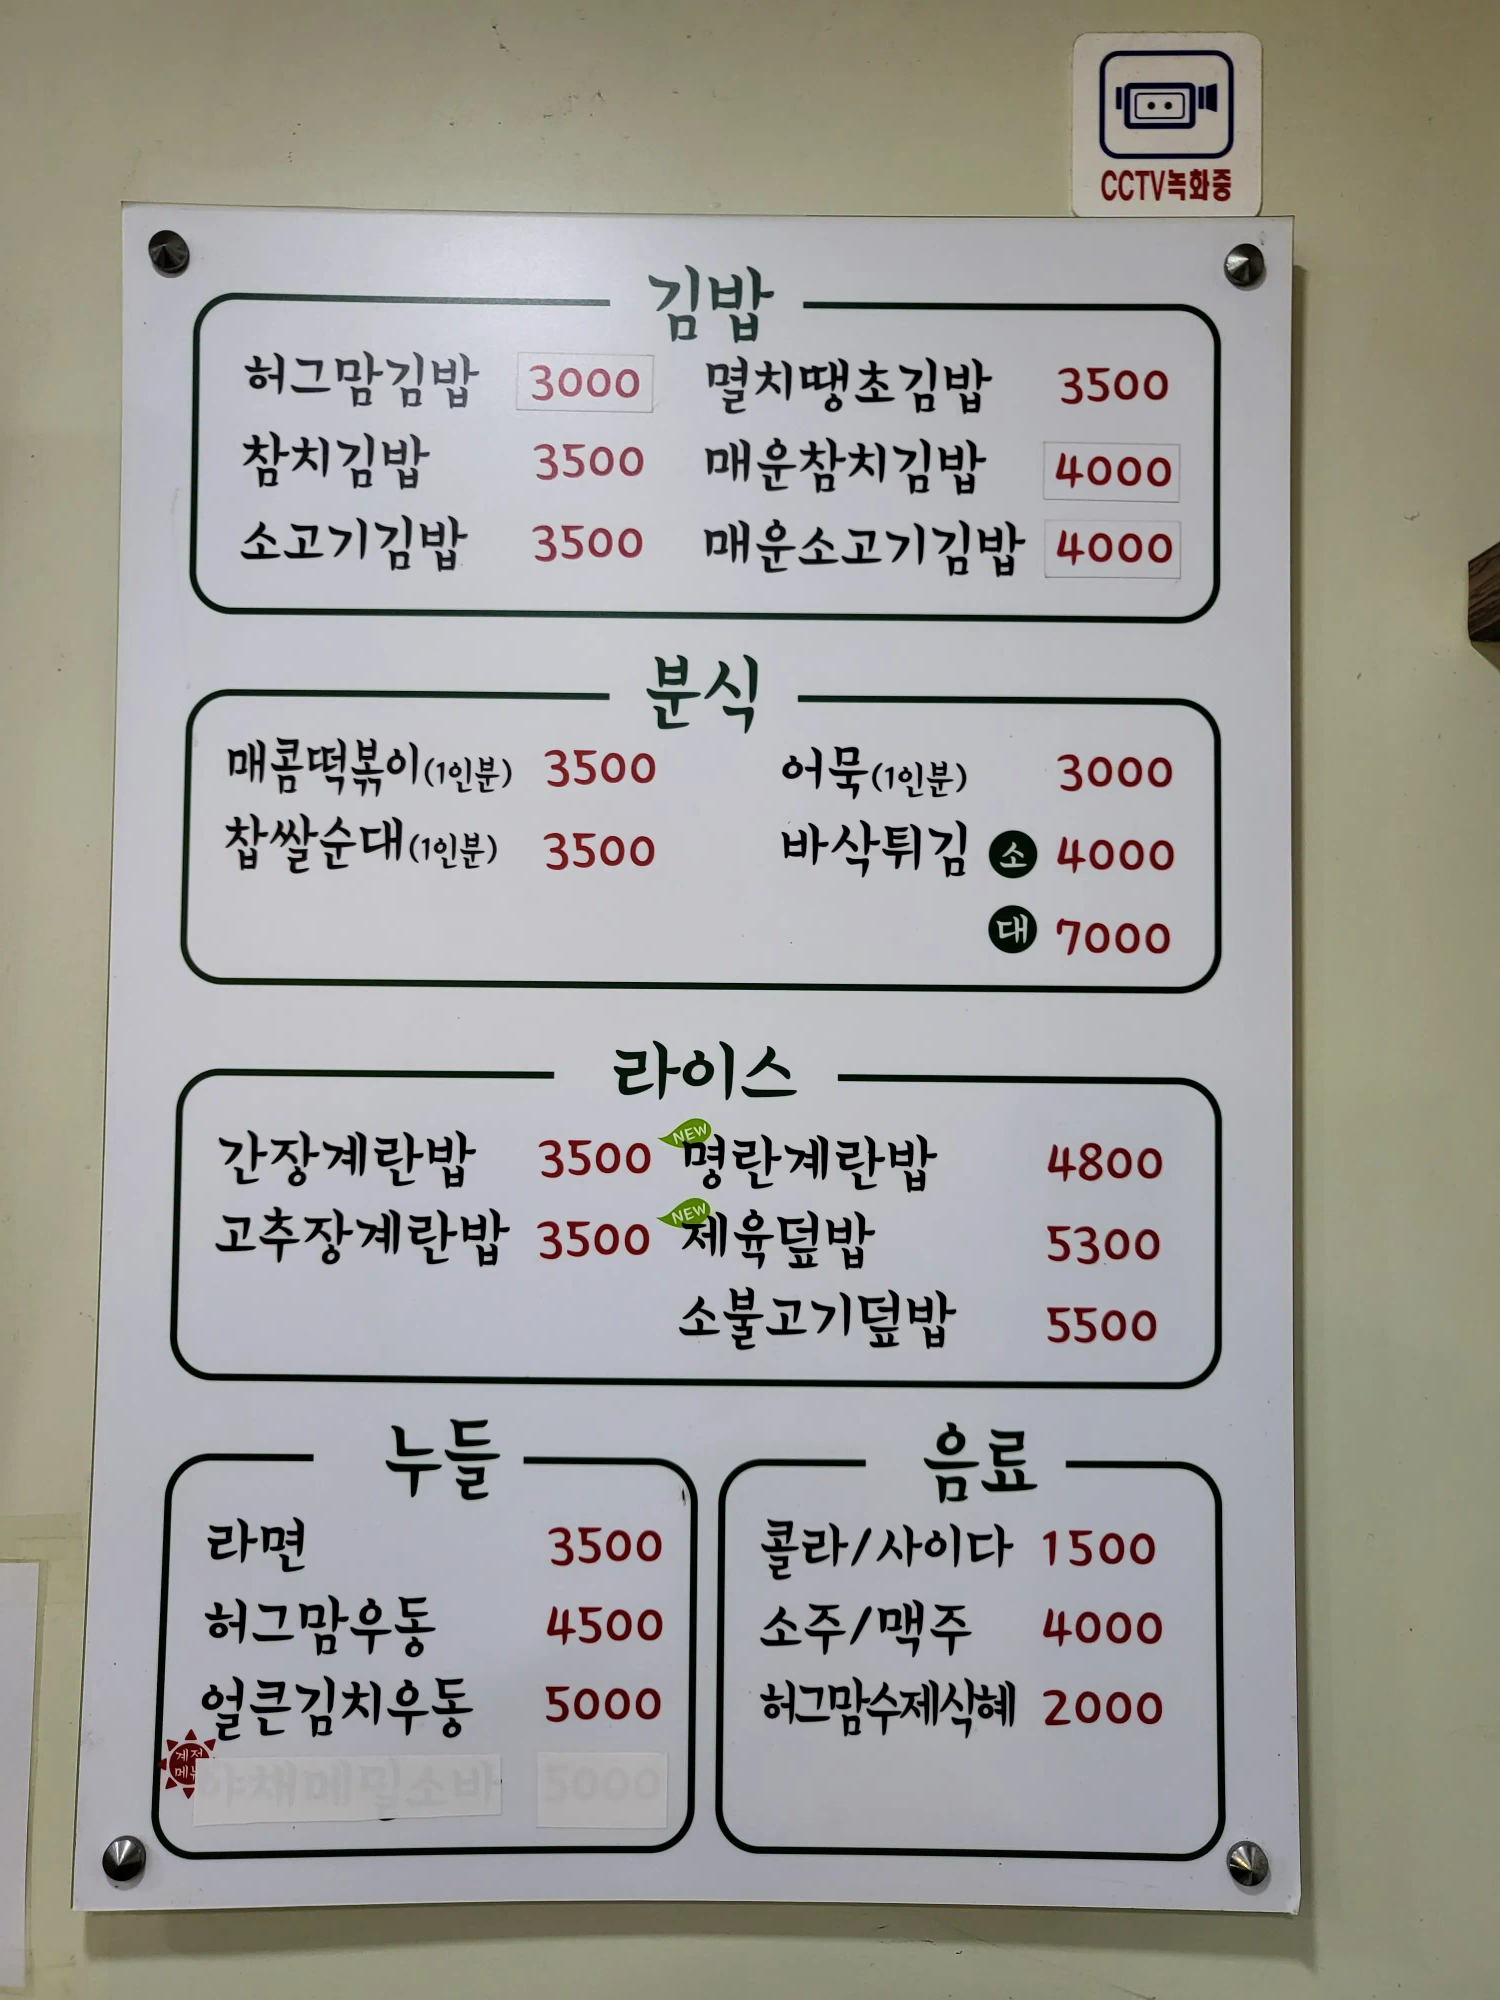 CCTV녹화중
김밥
허그맘김밥 3000 멸치땡초김밥 3500
참치김밥 3500 매운참치김밥 4000
소고기김밥 3500 매운소고기김밥 4000
분식
매콤떡볶이(1인분) 3500 어묵(1인분) 3000
찹쌀순대(1인분) 3500 바삭튀김 소 4000
대 7000
라이스
간장계란밥 3500 NEW 명란계란밥 4800
고추장계란밥 3500 NEW 제육덮밥 5300
소불고기덮밥 5500
누들
라면 3500
허그맘우동 4500
얼큰김치우동 5000
계절
메뉴
야채메밀소바 5000
음료
콜라/사이다 1500
소주/맥주 4000
허그맘수제식혜 2000